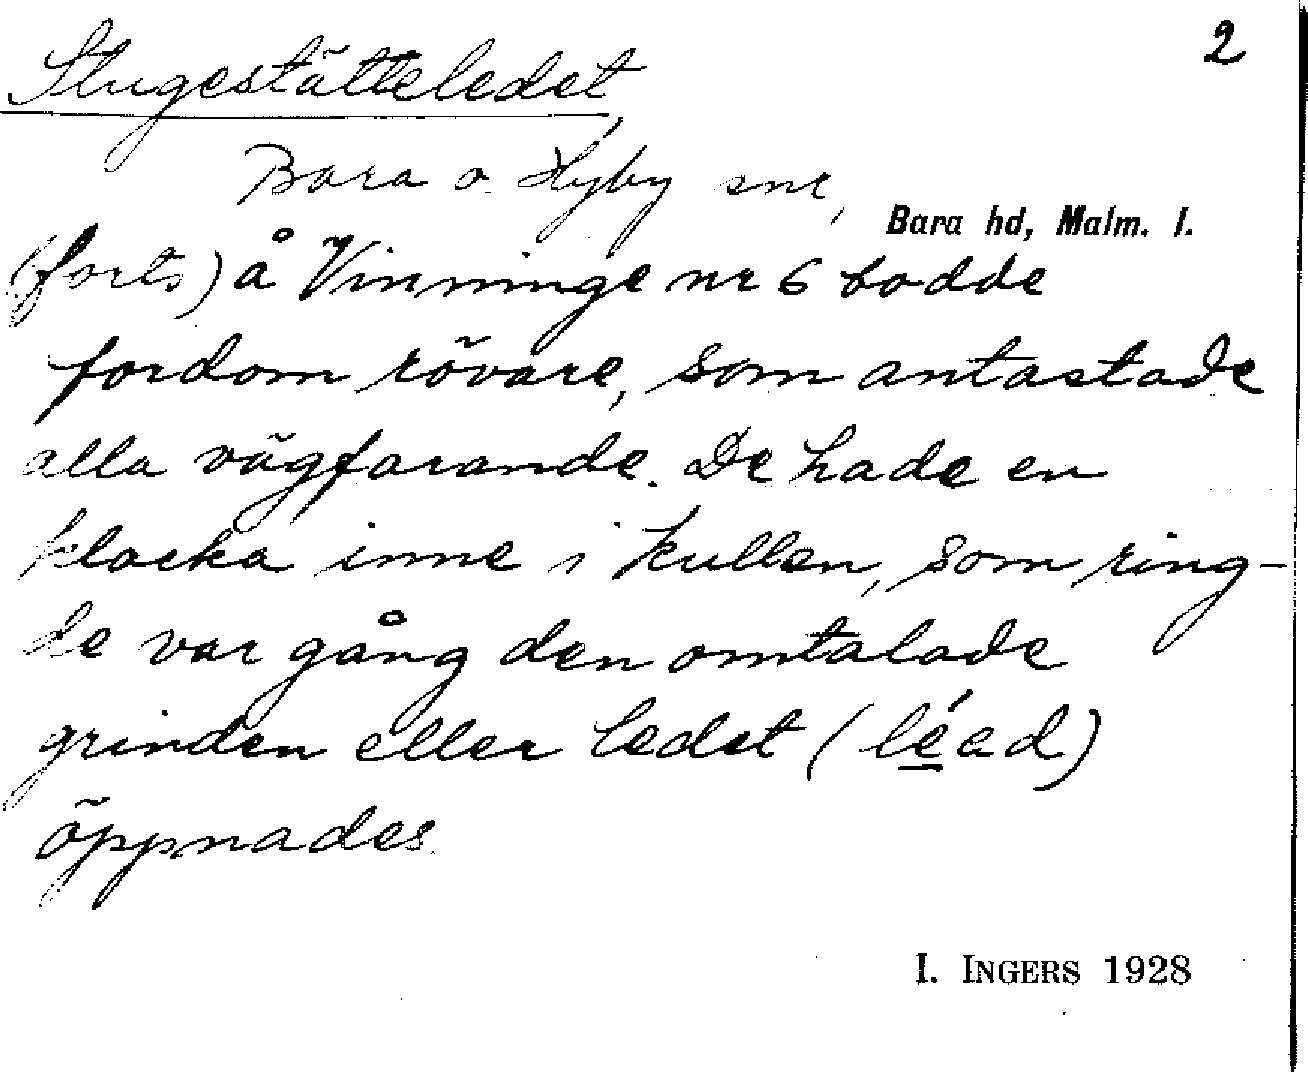 2
Slugestätteledet
Bara o. Hyby snr,
Bara hd, Malm. l.
(forts) å Vinninge nr 6 bodde
fordom rövare, som antastade
alla vägfarande. De hade en
klocka inne i kullen, som ring-
de var gång den omtalade
grinden eller ledet (léad)
öppnades.
I. INGERS 1928